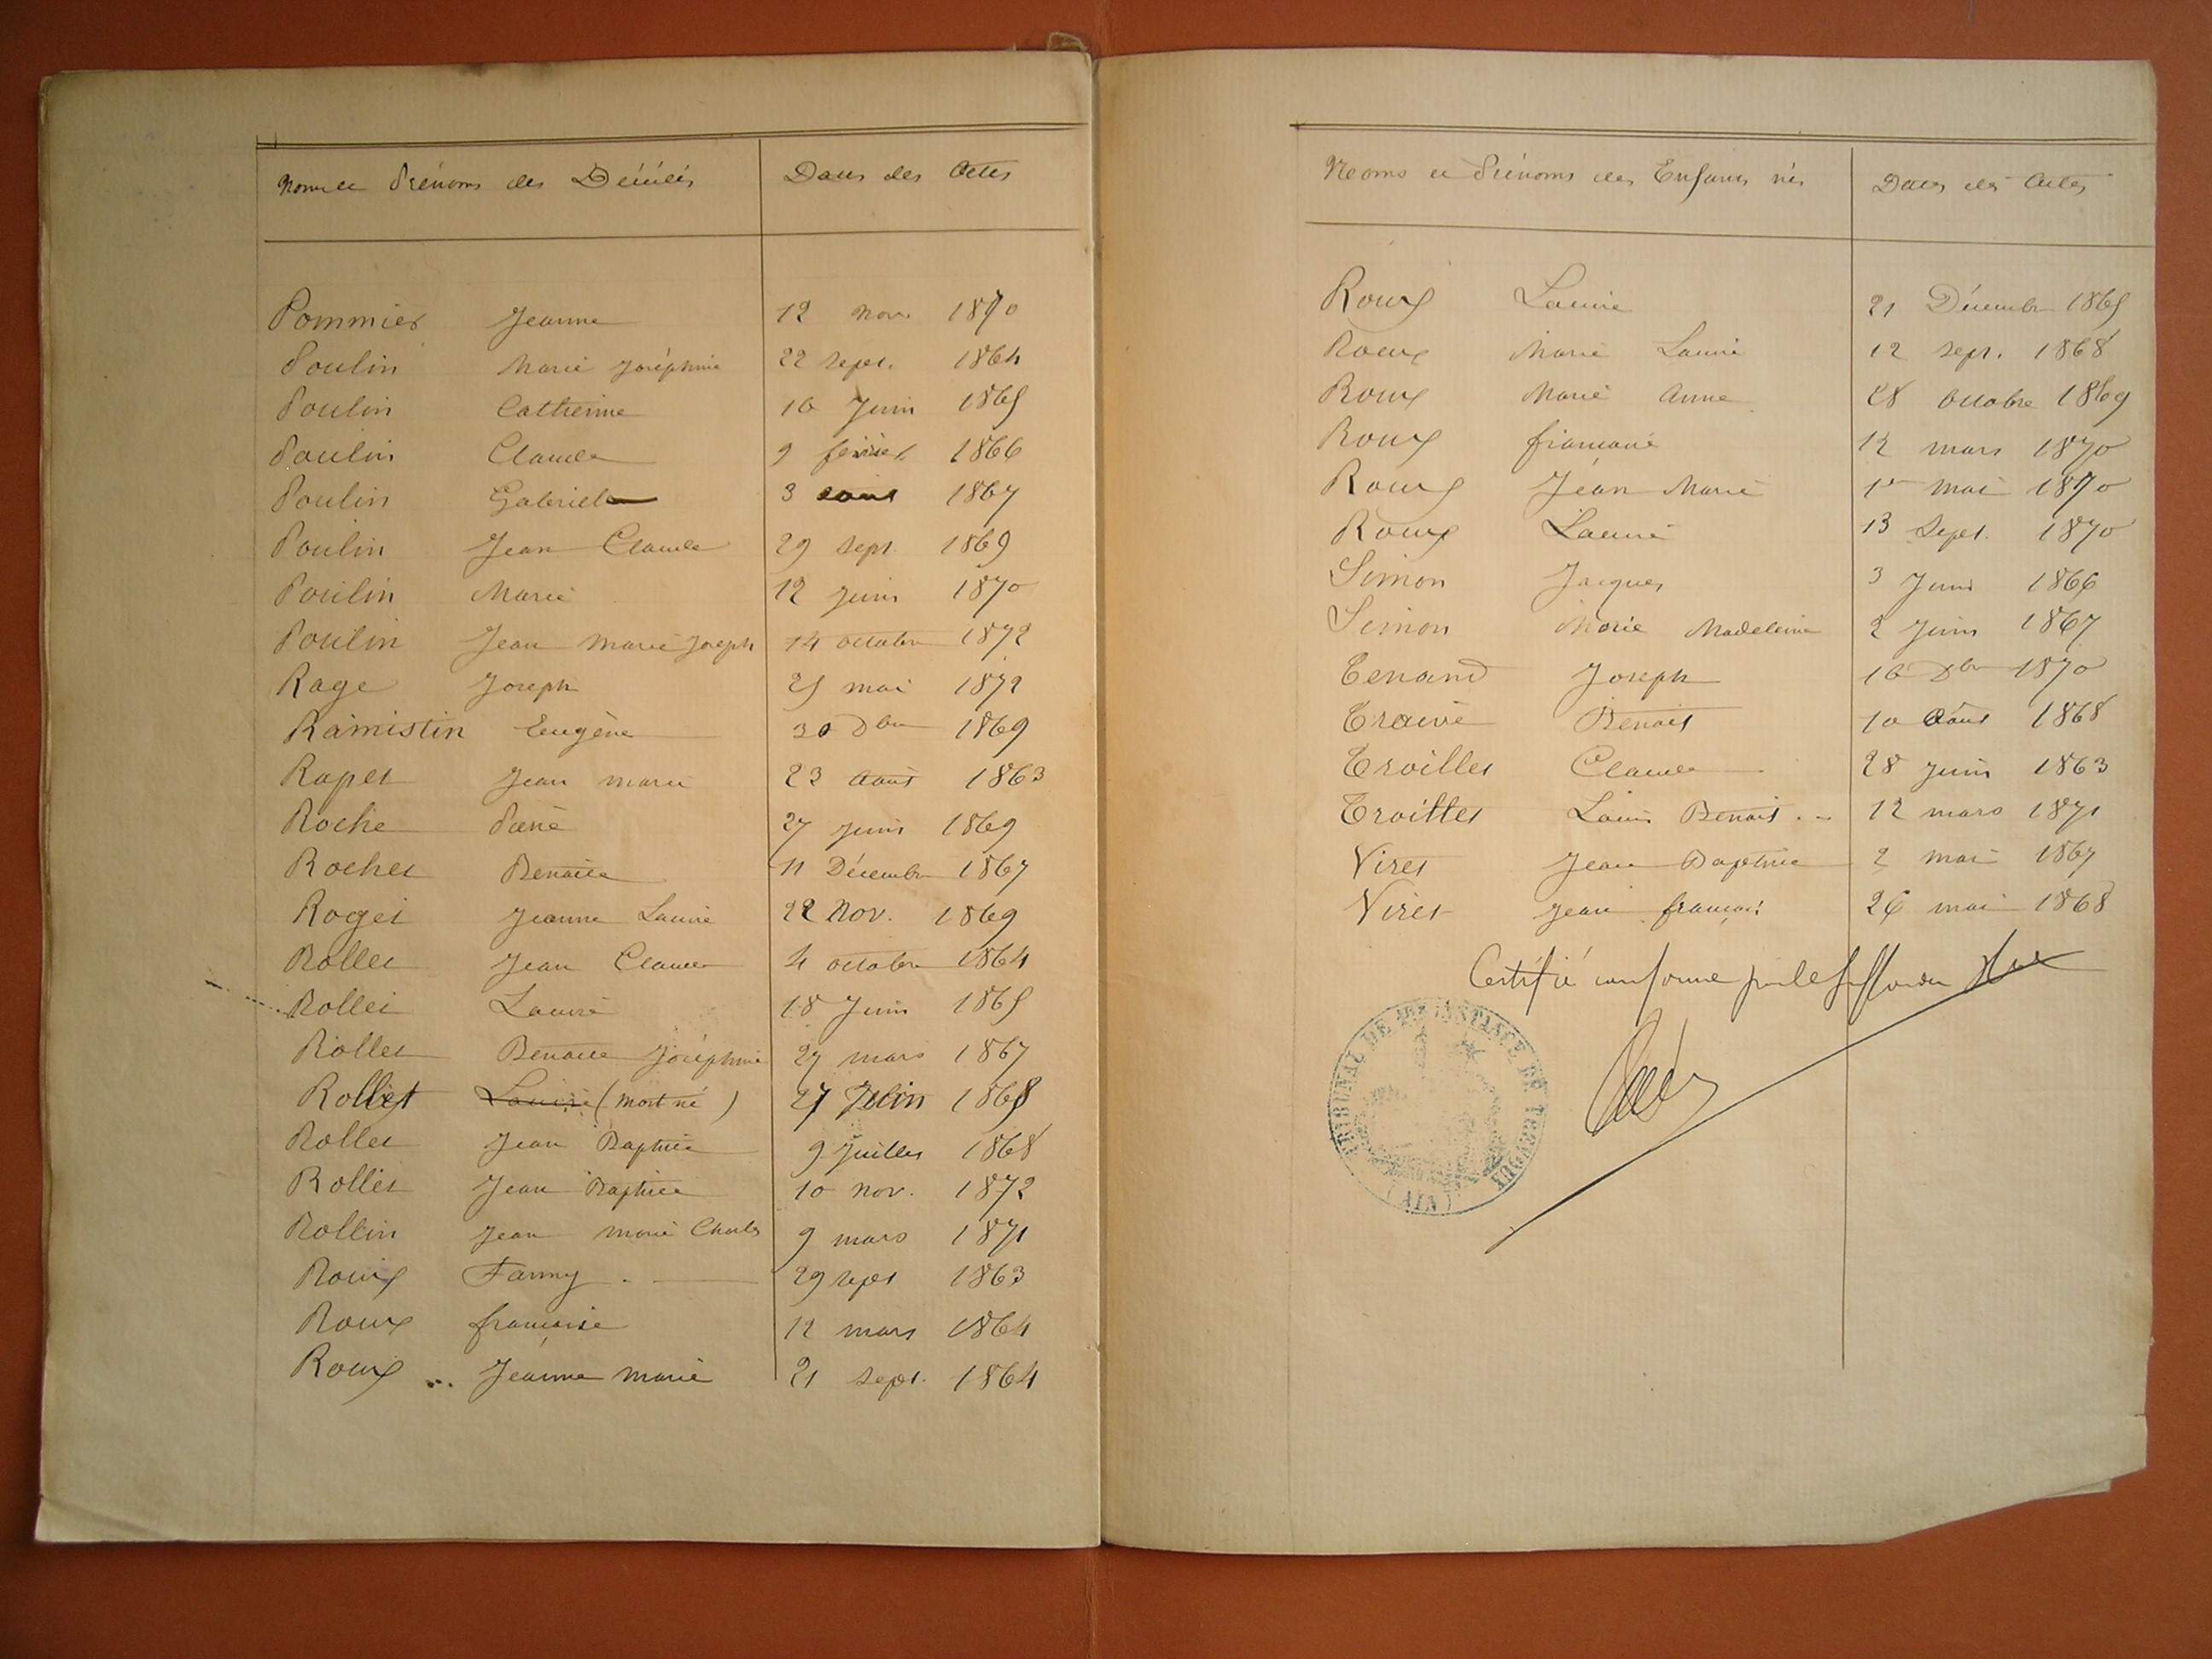 Noms et Prénoms des Décédés Dates des Actes
Pommier Jeanne 12 nov. 1870
Poulin Marie Joséphine 22 sept. 1864
Poulin Catherine 16 Juin 1865
Poulin Claude 9 février 1866
Poulin Gabriel 3 août 1867
Poulin Jean Claude 29 sept. 1869
Poulin Marie 12 juin 1870
Poulin Jean Marie Joseph 14 octobre 1872
Rage Joseph 25 mai 1872
Ramistin Eugène 30 Dbre 1869
Rapet Jean marie 23 août 1863
Roche 27 juin 1869
Rochet Benoite 11 Décembre 1867
Roger Jeanne Louise 22 Nov. 1869
Rollet Jean Claude 4 octobre 1864
Rollet Louise 18 Juin 1865
Rollet Benoite Joséphine 27 mars 1867
Rollet Louise (Mort né) 27 Juin 1868
Rollet Jean Baptiste 9 Juillet 1868
Rollet Jean Baptiste 10 nov. 1872
Rollin Jean marie Charles 9 mars 1871
Roux Fanny 29 sept 1863
Roux françoise 12 mars 1864
Roux Jeanne marie 21 sept. 1864
Noms et Prénoms des Enfants nés Dates des Actes
Roux Louise 21 Décembre 1865
Roux Marie Louise 12 sept. 1868
Roux Marie Anne 28 octobre 1869
Roux 12 mars 1870
Roux Jean Marie 1er mai 1870
Roux Louise 13 Sept. 1870
Simon Jacques 3 Juin 1866
Simon Marie Madeleine 2 Juin 1867
Tenand Joseph 16 Dbre 1870
Benoit 10 Août 1868
Troillet Claude 28 juin 1863
Troillet Louis Benoit 12 mars 1871
Viret Jean Baptiste 2 mai 1867
Viret Jean françois 26 mai 1868
Certifié conforme par le
TRIBUNAL DE 1ERE INSTANCE DE TREVOUX
(AIN)